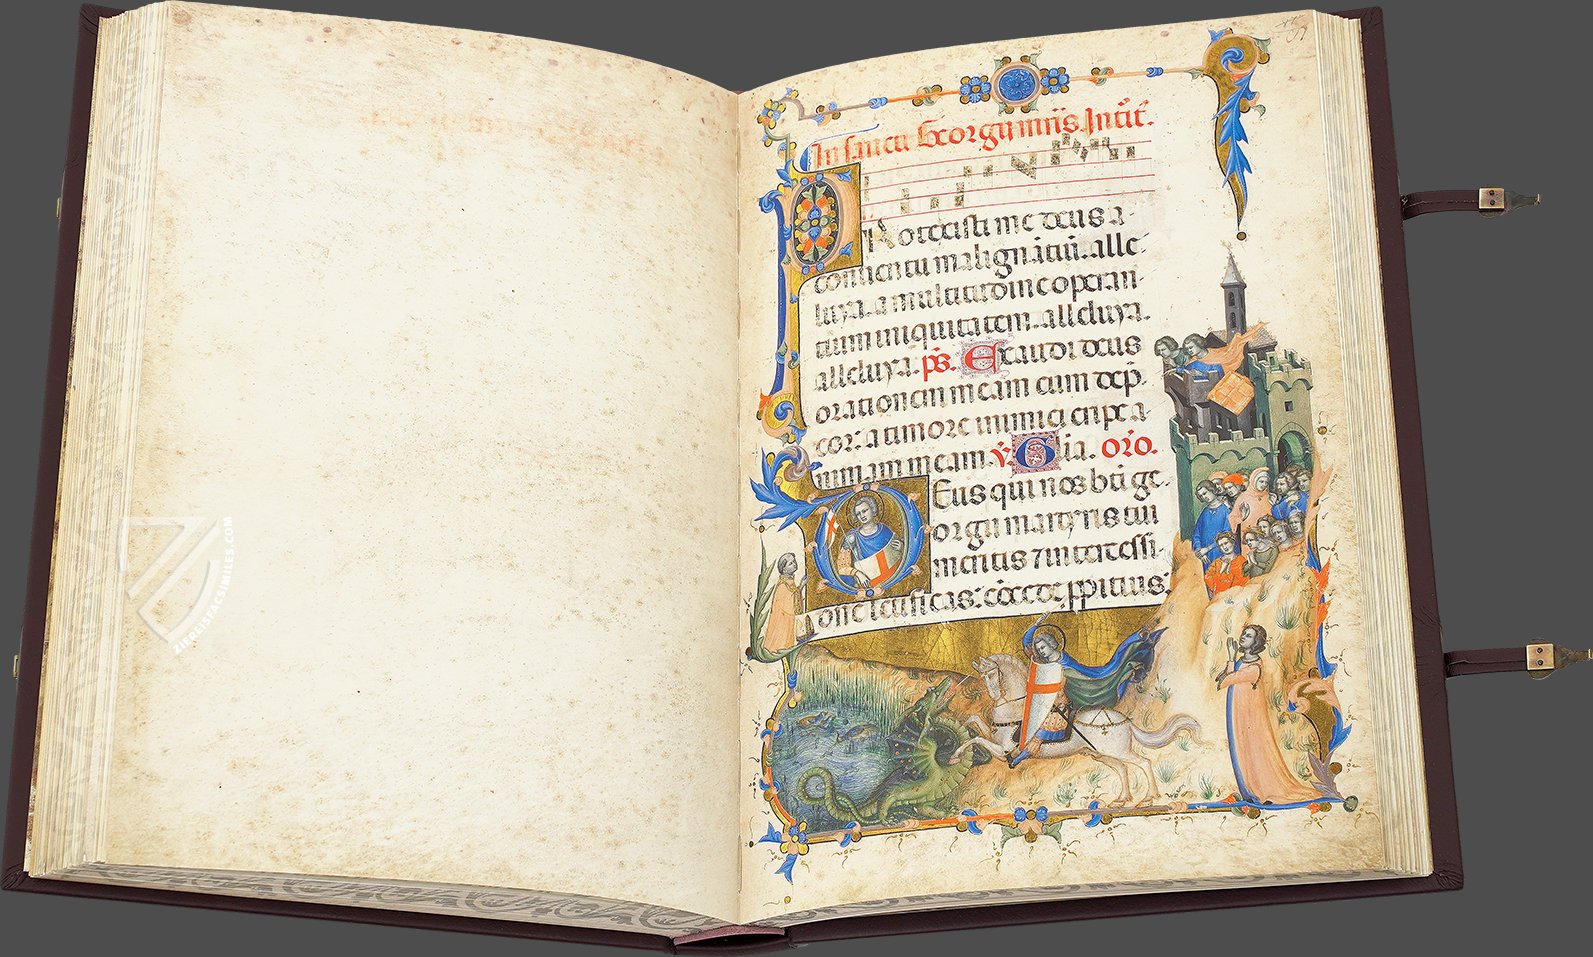 In sancti Georgii mr̃is. Intit̃.
Protexisti me deus a
conuentu malignãtiũ. alle
luya. a multitudine operan
tium iniquitatem. alleluya.
alleluya. ps̃. Exaudi deus
orationem meam cum dep̃
cor. a timore inimici eripe a
nimam meam. v̷. Glia. orõ.
Deus qui nos bẽti ge
orgii martyris tui
meritis ⁊ intercessi
one letificas: cõcede ppitius:
ZIEREISFACSIMILES.COM